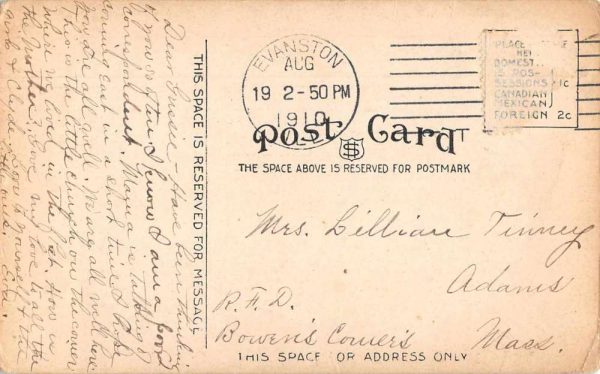 Dear Gussie - Have been thinking
of you so often I know I am a poor
correspondent. Mama is talking of
coming east in a short time I hope
they are all well. Mary all well here
This is the little church on the corner
where we lived in the flat. How is
the Mother? Give my love to all the
and
Love to yourself & the
Eva.
THIS SPACE IS RESERVED FOR MESSAGE
EVANSTON
AUG
19 2-50 PM
1910
ILL.
PLACE HERE
DOMEST
IS. POS-
SESSIONS 1c
CANADIAN
MEXICAN
FOREIGN 2c
Post Card
THE SPACE ABOVE IS RESERVED FOR POSTMARK
Mrs. Lillian Tinney
Adams
R.F.D.
Bowen's Corners Mass.
THIS SPACE FOR ADDRESS ONLY